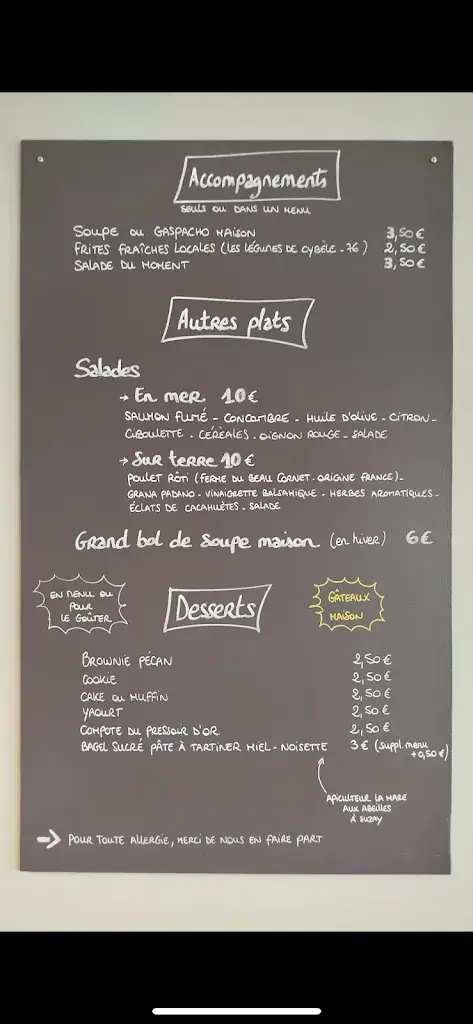 Accompagnements
SEULS OU DANS UN MENU
SOUPE OU GASPACHO MAISON 3,50€
FRITES FRAÎCHES LOCALES (LES LÉGUMES DE CYBÈLE - 76) 2,50€
SALADE DU MOMENT 3,50€
Autres plats
Salades
→ En mer 10€
SAUMON FUMÉ - CONCOMBRE - HUILE D'OLIVE - CITRON -
CIBOULETTE - CÉRÉALES - OIGNON ROUGE - SALADE
→ Sur terre 10€
POULET RÔTI (FERME DU BEAU CORNET - ORIGINE FRANCE) -
GRANA PADANO - VINAIGRETTE BALSAMIQUE - HERBES AROMATIQUES -
ÉCLATS DE CACAHUÈTES - SALADE
Grand bol de soupe maison (en hiver) 6€
EN MENU OU
POUR
LE GOÛTER
Desserts
GÂTEAUX
MAISON
BROWNIE PÉCAN 2,50€
COOKIE 2,50€
CAKE OU MUFFIN 2,50€
YAOURT 2,50€
COMPOTE DU PRESSOIR D'OR 2,50€
BAGEL SUCRÉ PÂTE À TARTINER MIEL - NOISETTE 3€ (suppl. menu
+0,50€)
APICULTEUR LA MARE
AUX ABEILLES
À SUZAY
→ POUR TOUTE ALLERGIE, MERCI DE NOUS EN FAIRE PART